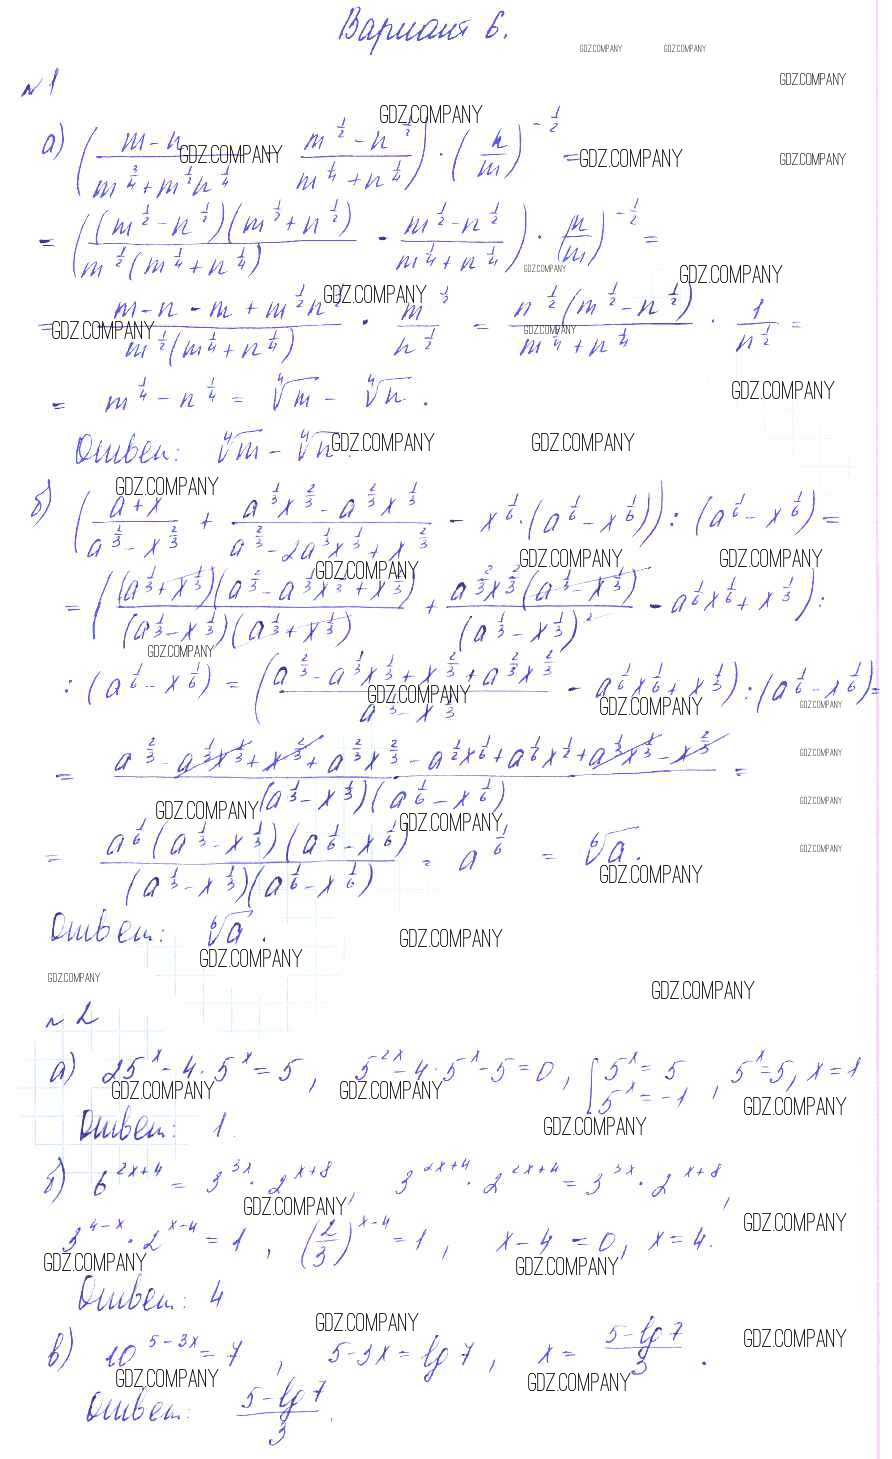 Вариант 6.
GDZ.COMPANY GDZ.COMPANY
№1
GDZ.COMPANY
GDZ.COMPANY
а) ((m-n)/(m^(3/4)+m^(1/2)n^(1/4)) - (m^(1/2)-n^(1/2))/(m^(1/4)+n^(1/4))) · (n/m)^(-1/2) =
GDZ.COMPANY GDZ.COMPANY GDZ.COMPANY
= (((m^(1/2)-n^(1/2))(m^(1/2)+n^(1/2)))/(m^(1/2)(m^(1/4)+n^(1/4))) - (m^(1/2)-n^(1/2))/(m^(1/4)+n^(1/4))) · (n/m)^(-1/2) =
GDZ.COMPANY GDZ.COMPANY
GDZ.COMPANY
= (m-n-m+m^(1/2)n^(1/2))/(m^(1/2)(m^(1/4)+n^(1/4))) · m^(1/2)/n^(1/2) = (n^(1/2)(m^(1/2)-n^(1/2)))/(m^(1/4)+n^(1/4)) · 1/n^(1/2) =
GDZ.COMPANY GDZ.COMPANY
GDZ.COMPANY
= m^(1/4) - n^(1/4) = ⁴√m - ⁴√n.
Ответ: ⁴√m - ⁴√n.
GDZ.COMPANY GDZ.COMPANY
GDZ.COMPANY
б) ((a+x)/(a^(2/3)-x^(2/3)) + (a^(1/3)x^(2/3)-a^(2/3)x^(1/3))/(a^(2/3)-2a^(1/3)x^(1/3)+x^(2/3)) - x^(1/6)·(a^(1/6)-x^(1/6))) : (a^(1/6)-x^(1/6)) =
GDZ.COMPANY GDZ.COMPANY GDZ.COMPANY
= (((a^(1/3)+x^(1/3))(a^(2/3)-a^(1/3)x^(1/3)+x^(2/3)))/((a^(1/3)-x^(1/3))(a^(1/3)+x^(1/3))) + (a^(2/3)x^(2/3)(a^(1/3)-x^(1/3)))/(a^(1/3)-x^(1/3))^2 - a^(1/6)x^(1/6)+x^(1/3)) :
GDZ.COMPANY
: (a^(1/6)-x^(1/6)) = ((a^(2/3)-a^(1/3)x^(1/3)+x^(2/3)+a^(2/3)x^(2/3))/(a^(1/3)-x^(1/3)) - a^(1/6)x^(1/6)+x^(1/3)) : (a^(1/6)-x^(1/6)) =
GDZ.COMPANY GDZ.COMPANY GDZ.COMPANY
= (a^(2/3)-a^(1/3)x^(1/3)+x^(2/3)+a^(2/3)x^(2/3)-a^(1/2)x^(1/6)+a^(1/6)x^(1/2)+a^(1/3)x^(1/3)-x^(2/3))/((a^(1/3)-x^(1/3))(a^(1/6)-x^(1/6))) =
GDZ.COMPANY
GDZ.COMPANY GDZ.COMPANY GDZ.COMPANY
= (a^(1/6)(a^(1/3)-x^(1/3))(a^(1/6)-x^(1/6)))/((a^(1/3)-x^(1/3))(a^(1/6)-x^(1/6))) = a^(1/6) = ⁶√a.
GDZ.COMPANY GDZ.COMPANY
Ответ: ⁶√a.
GDZ.COMPANY
GDZ.COMPANY
GDZ.COMPANY GDZ.COMPANY
№2
а) 25^x - 4·5^x = 5, 5^(2x) - 4·5^x - 5 = 0, [5^x = 5 5^x = -1, 5^x = 5, x = 1
GDZ.COMPANY GDZ.COMPANY GDZ.COMPANY
Ответ: 1.
GDZ.COMPANY
б) 6^(2x+4) = 3^(3x)·2^(x+8), 3^(2x+4)·2^(2x+4) = 3^(3x)·2^(x+8),
GDZ.COMPANY GDZ.COMPANY
3^(4-x)·2^(x-4) = 1, (2/3)^(x-4) = 1, x-4 = 0, x = 4.
GDZ.COMPANY GDZ.COMPANY
Ответ: 4
GDZ.COMPANY GDZ.COMPANY
в) 10^(5-3x) = 7, 5-3x = lg 7, x = (5-lg 7)/3.
GDZ.COMPANY GDZ.COMPANY
Ответ: (5-lg 7)/3.